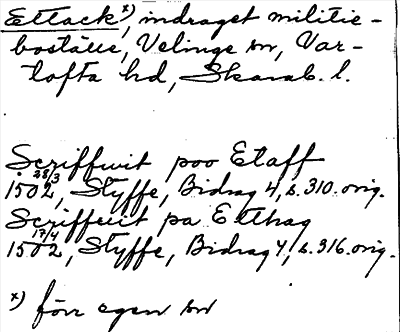 Ettack x), indraget militie-
boställe, Velinge sn, Var-
tofta hd, Skarab. l.
Scriffwit poo Etaff
28/3 1502, Styffe, Bidrag 4, s. 310. orig.
Scriffuit pa Etthag
17/4 1502, Styffe, Bidrag 4, s. 316. orig.
x) förr egen sn